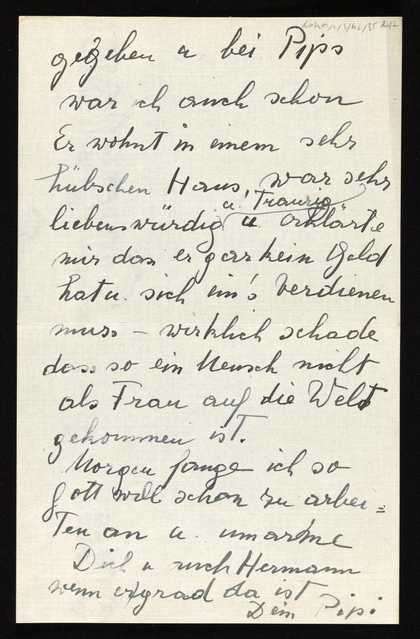 gegeben u bei Pips
war ich auch schon
Er wohnt in einem sehr
hübschen Haus, war sehr
u. Traurig
liebenswürdig u. erklärte
mir dass er gar kein Geld
hat u. sich ein's Verdienen
muss – wirklich schade
dass so ein Mensch nicht
als Frau auf die Welt
gekommen ist.
Morgen fange ich so
Gott will schon zu arbei=
Ten an u. umarme
Dich u auch Hermann
wenn er grad da ist
Dein Pipsi